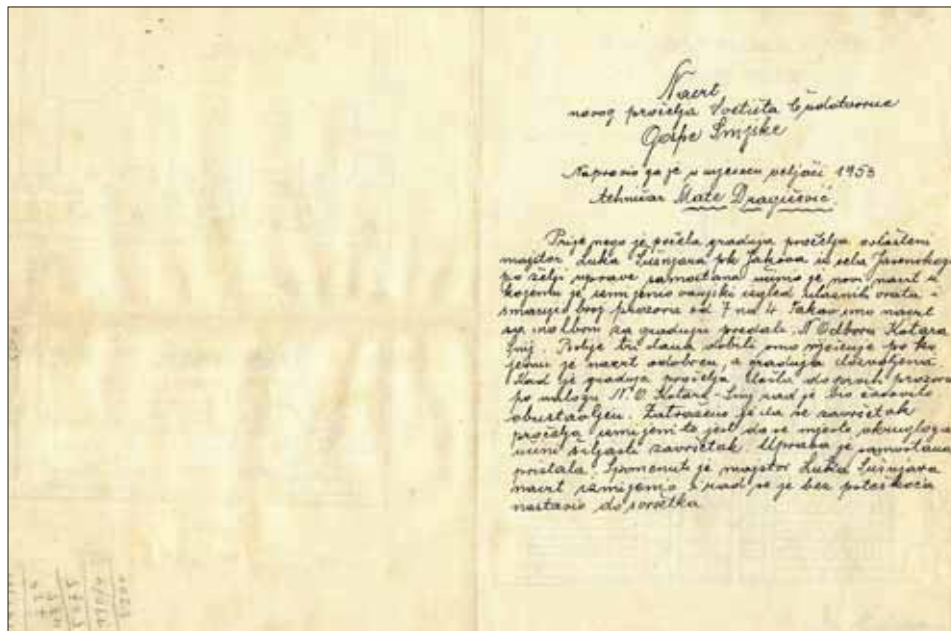 Nacrt
novog pročelja Svetišta Čudotvorne
Gospe Sinjske
Napravio ga je u mjesecu veljači 1953
tehničar Mate Dragičević.
Prije nego je počela gradnja pročelja ovlašteni
majstor Luka Sušnjara pk Jakova iz sela Jasensko
po želji uprave samostana učinio je novi nacrt u
kojemu je izmijenio vanjski izgled ulaznih vrata i
smanjio broj prozora od 7 na 4 Takav smo nacrt
sa molbom za gradnju predali N Odboru Kotara
Sinj. Poslije tri dana dobili smo rješenje po ko
jemu je nacrt odobren, a gradnja dozvoljena.
Kad je gradnja pročelja došla do prvih prozora
po nalogu N. O. Kotara - Sinj rad je bio časovito
obustavljen. Zatraženo je da se završetak
pročelja izmijeni to jest da se mjesto okrugloga
učini šiljasti završetak. Uprava je samostana
pristala. Spomenuti je majstor Luka Sušnjara
nacrt izmijenio i rad se je bez poteškoća
nastavio do svršetka